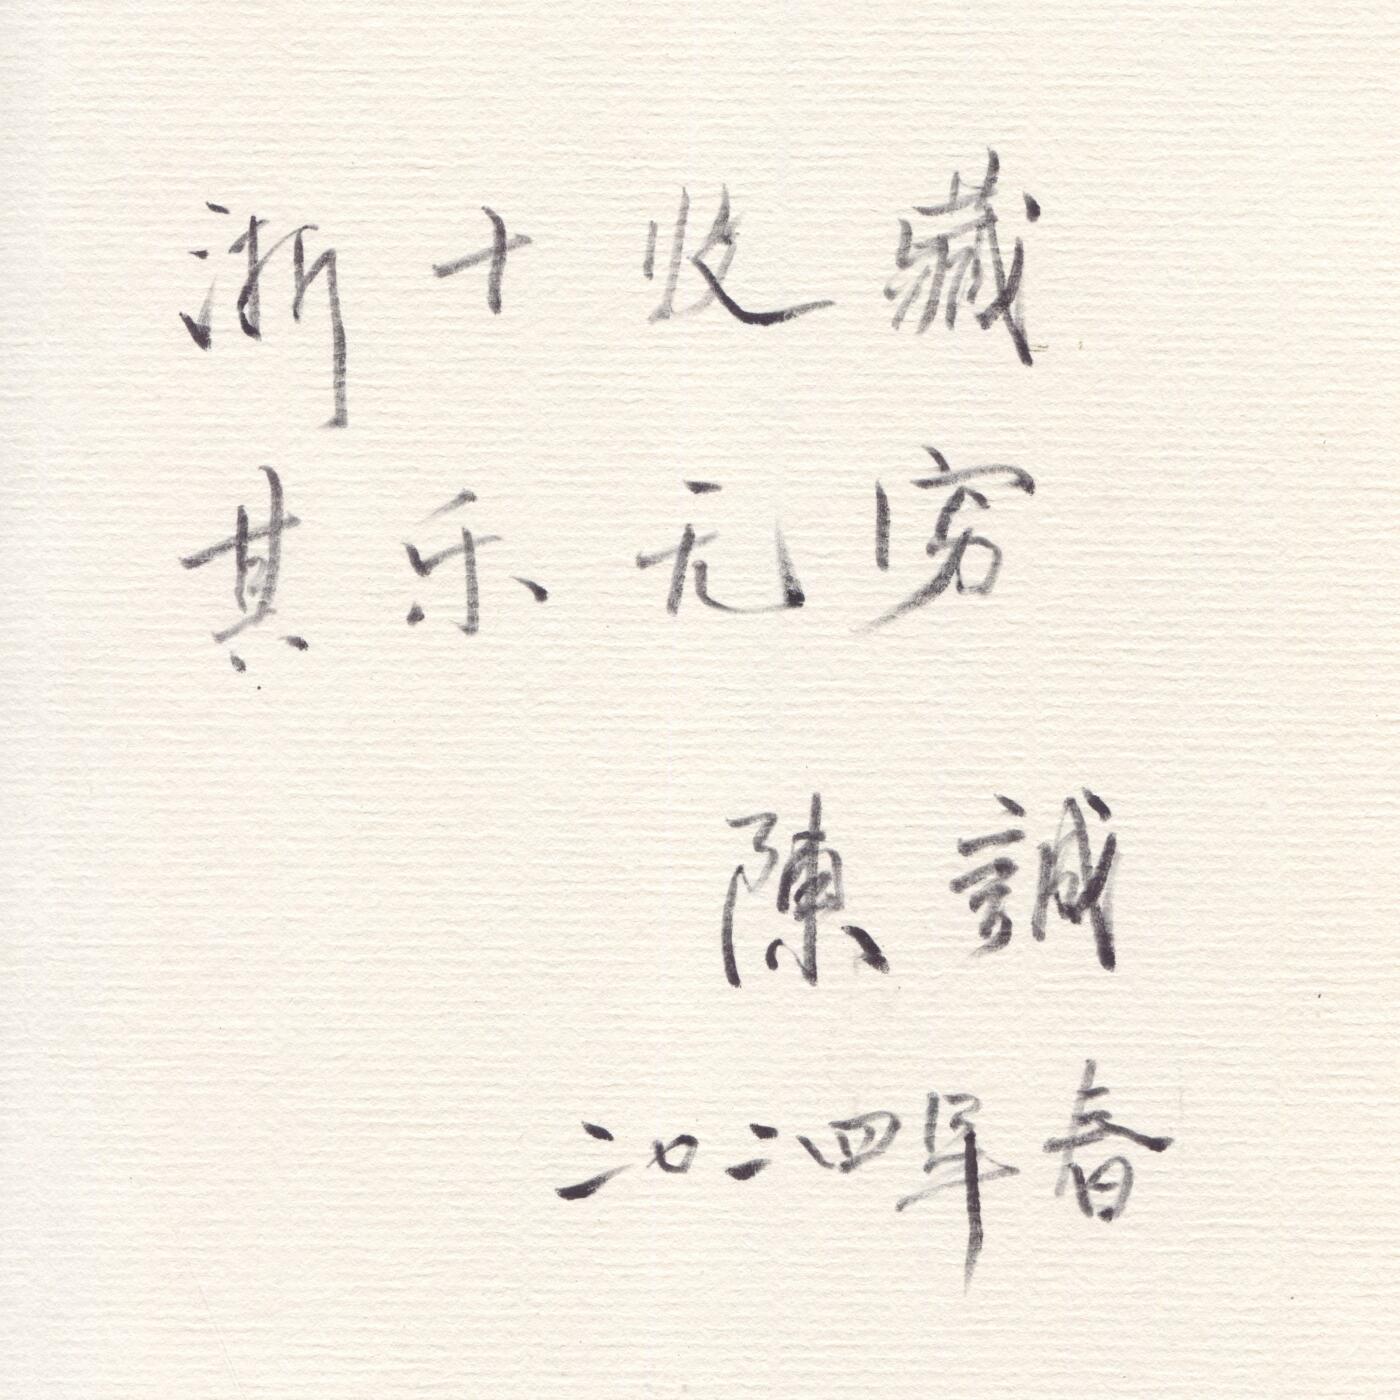 浙十收藏
其乐无穷
陳誠
二〇二四年春